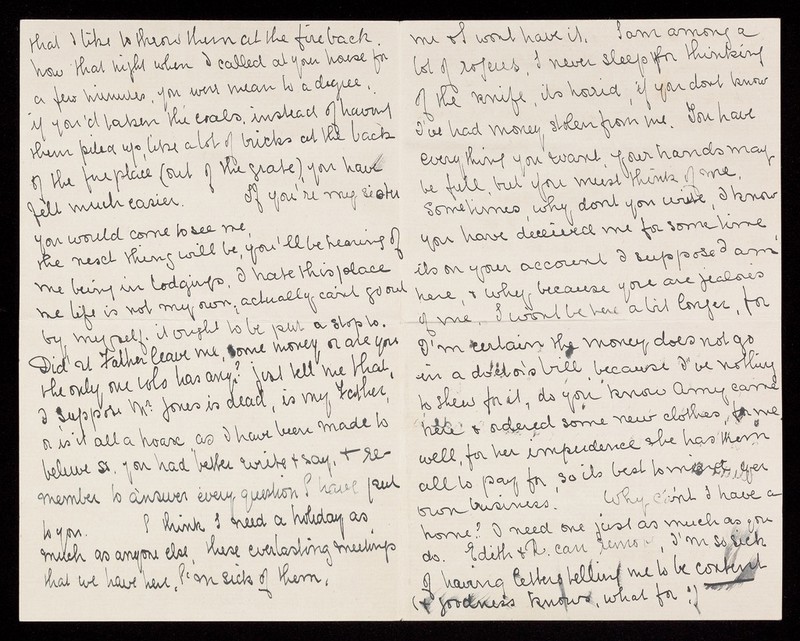 that I like to throw them at the fire back.
now that night when I called at your house for
a few minutes, you were mean to a degree.
if you'd taken the coals, instead of having
them piled up, like a lot of bricks at the back
of the fireplace (out of the grate), you have
felt much easier. If you're my sister
you would come to see me,
the next thing will be, you'll be hearing of
me being in lodgings. I hate this place
me life is not my own, actually can't go out
by myself. it ought to be put a stop to.
Did Father leave me, some money or are you
the only one who has any? just tell me that,
I suppose Mr. Jones is dead, is my Father,
or is it all a hoax as I have been made to
believe so. you had better write & say, & re-
member to answer every question I have put
to you. I think I need a holiday as
much as anyone else these everlasting meetings
that we have here, I'm sick of them.
me & I wont have it. I am among a
lot of rogues, I never sleep for thinking
of the knife, its horrid, if you dont know
I've had money stolen from me. You have
everything you want, your hands may
be full, but you must think of me.
Sometimes, why dont you write, I know
you have deceived me for some time
its on your account I suppose I am
here, & why, because you are jealous
of me. I wont be here a bit longer, for
I'm certain the money does not go
in a doctor's bill, because I've nothing
to shew for it, do you know Amy came
here & ordered some new clothes, for me
well, for her impudence she has them
all to pay for, so its best to mind yer
own business. Why can't I have a
home? I need one just as much as you
do. Edith & can , I'm so sick
of having letters telling me to be content
(& goodness knows, what for!)